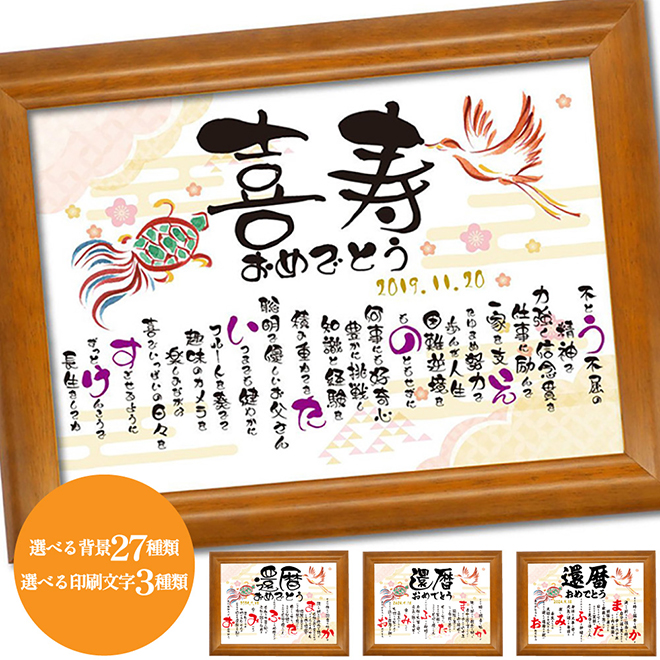 喜寿
おめでとう
2019.11.20
不とう不屈の
精神で
力強く信念貫き
仕事に励んで
一家を支え
たゆまぬ努力で
歩んだ人生
困難逆境を
ものともせずに
何事にも好奇心
豊かに挑戦し
知識と経験を
積み重ねてきた
聡明で優しいお父さん
いつまでも健やかに
フルートを奏でて
趣味のカメラを
楽しみながら
喜びいっぱいの日々を
すごせるように
ずっとけんこうで
長生きしてね
選べる背景27種類
選べる印刷文字3種類
還暦
おめでとう
還暦
おめでとう
還暦
おめでとう